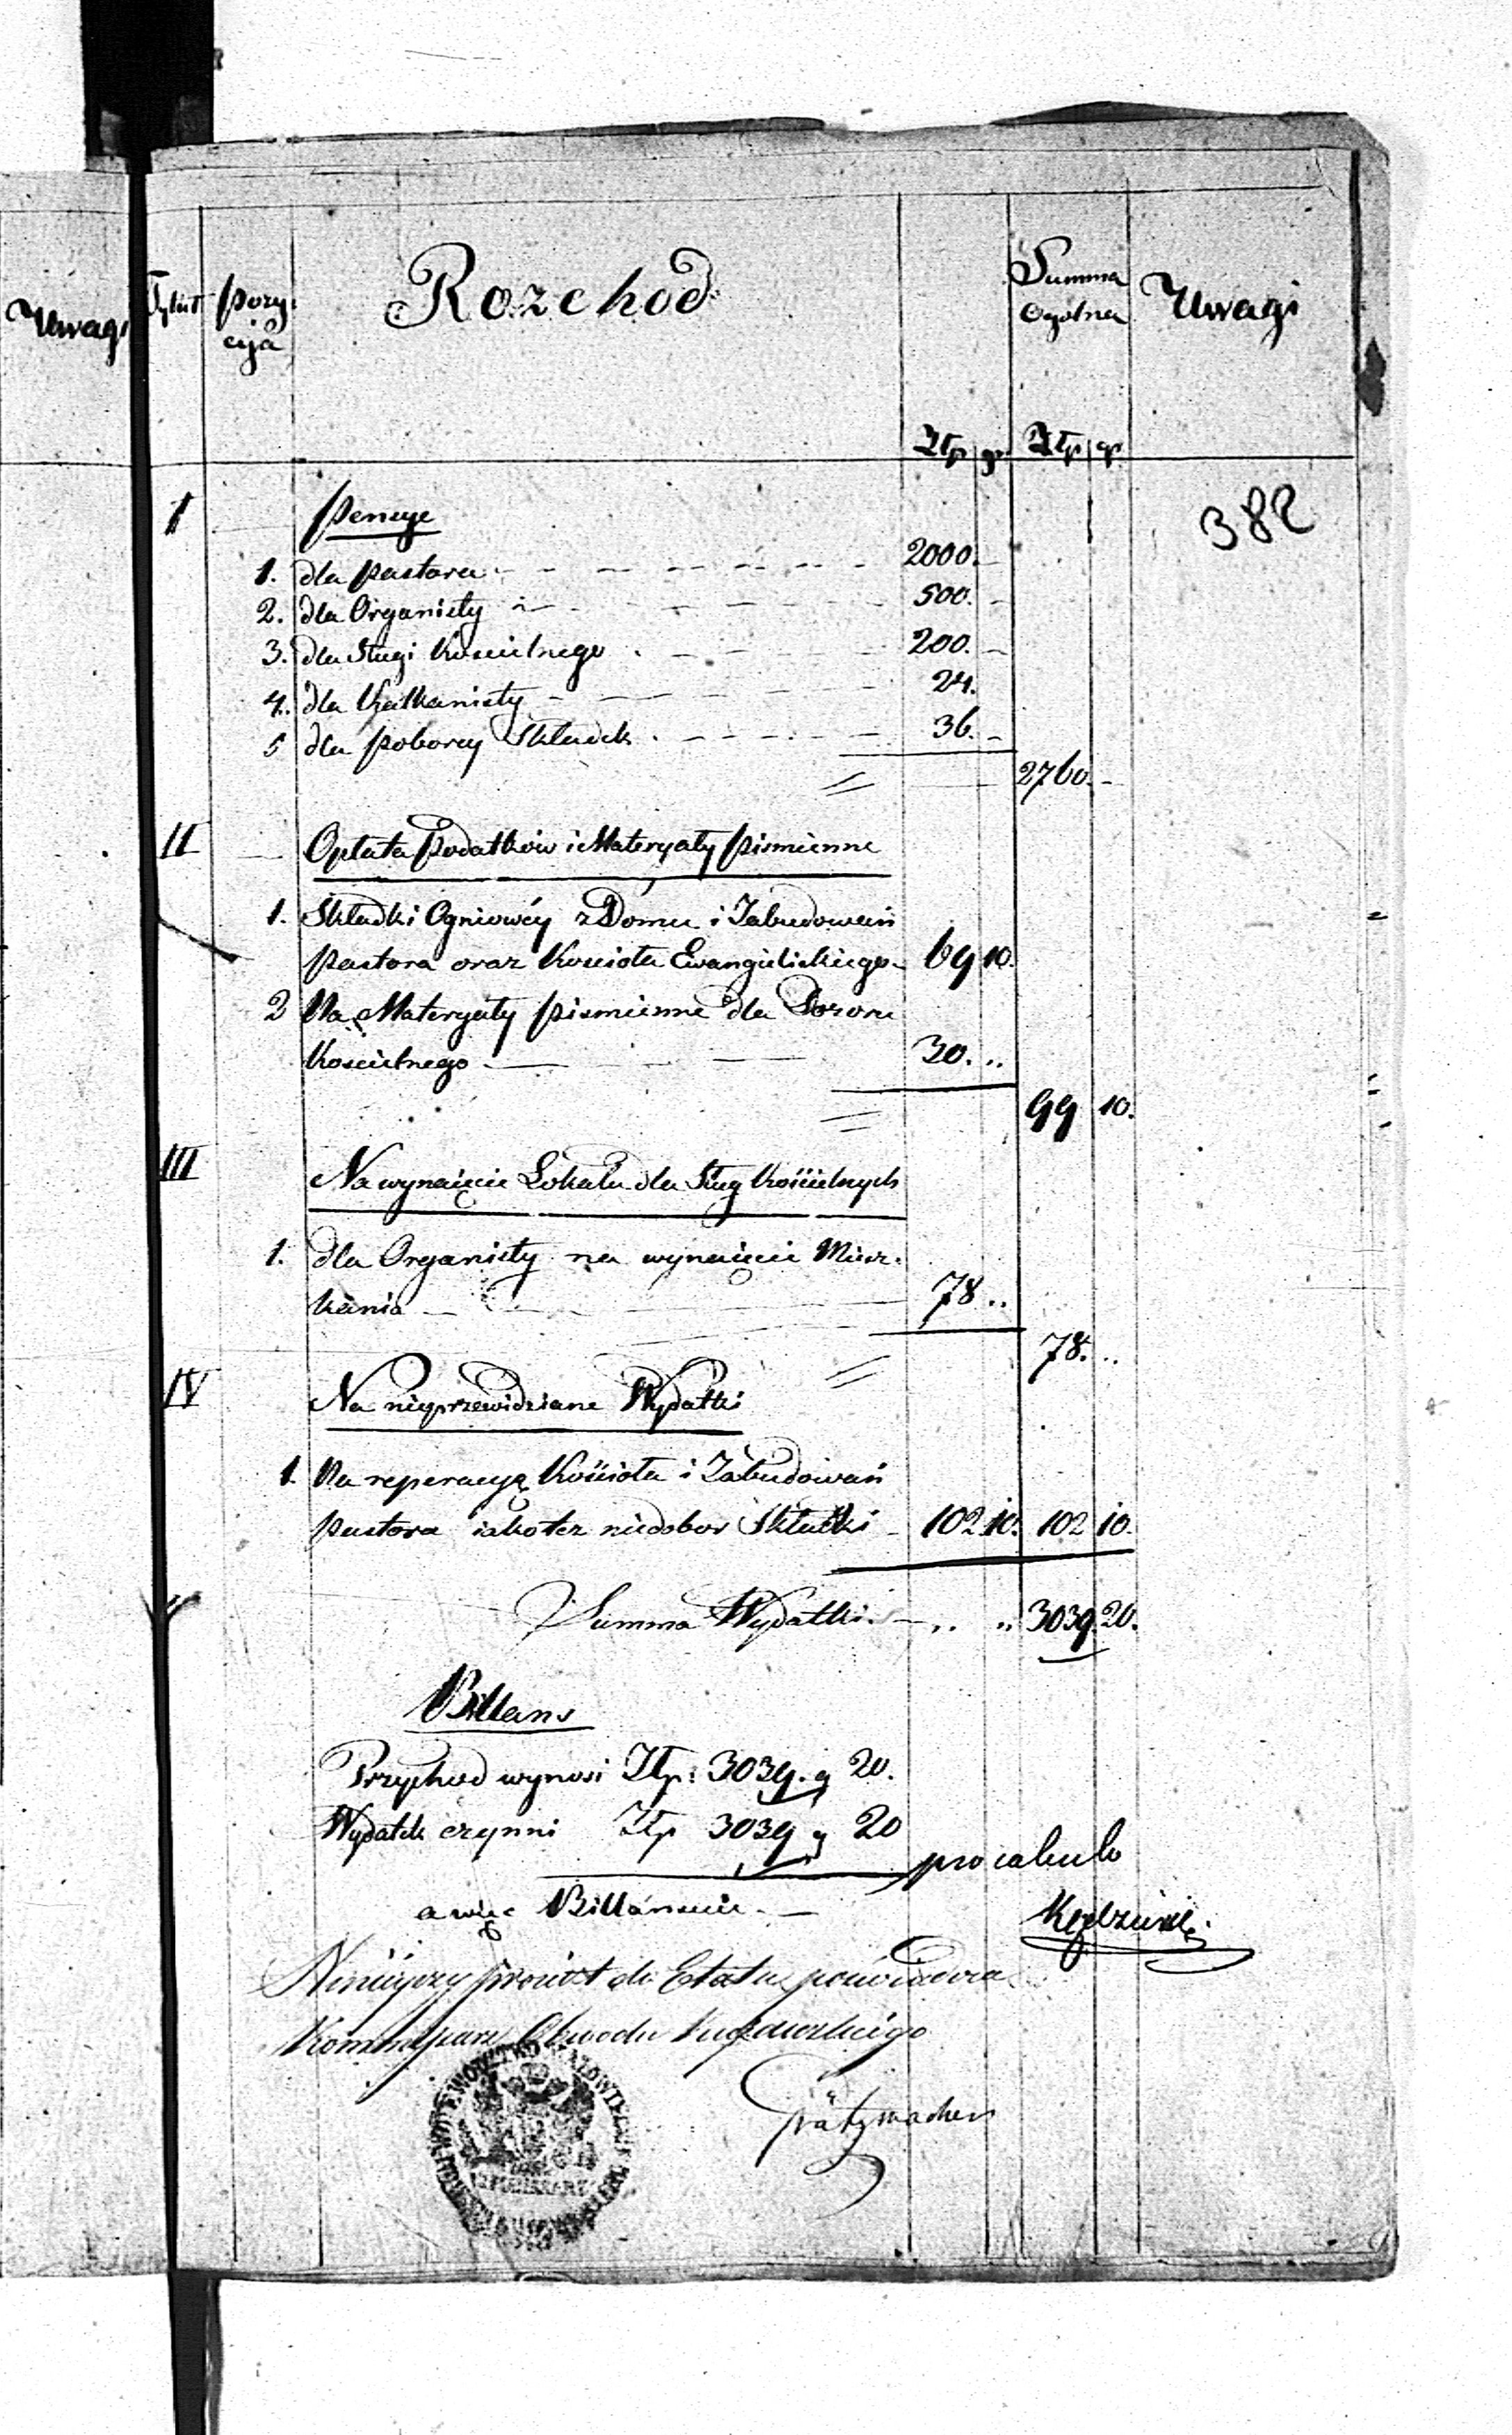 Uwagi
Tytuł
Pozy:
cija
Rozchod
Summa
Ogolna
Uwagi
Ztp gr Ztp gr
382
I Pensye
1. dla Pastora 2000.
2. dla Organisty 500.
3. dla Sługi Koscielnego 200.
4. dla Kalkanisty 24.
5 dla Poborcy Składek 36.
2760.
II Opłata Podatków i Materyały Pismienne
1. Składki Ogniowéy z Domu i Zabudowań
Pastora oraz Kościoła Ewangielickiego 69 10.
2 Na Materyały Pismienne dla Dozoru
Koscielnego 30. ..
99 10.
III Na wynaięcie Lokalu dla Sług Kościelnych
1. dla Organisty na wynaięcie Miesz-
kania 78 ..
78. ..
IV Na nieprzewidziane Wydatki
1. Na reperacyą Kościoła i Zabudowań
Pastora iakotez niedobor Składki 102 10. 102 10.
Summa Wydatki .. .. 3039. 20.
Billans
Przychod wynosi Ztp: 3039. g 20.
Wydatek czynni Ztp 3039 g 20
pro calculo
a więc Billansuie
Ninieyszy do Etatu poświadcza
Kommissarz Obwodu Kujawskiego